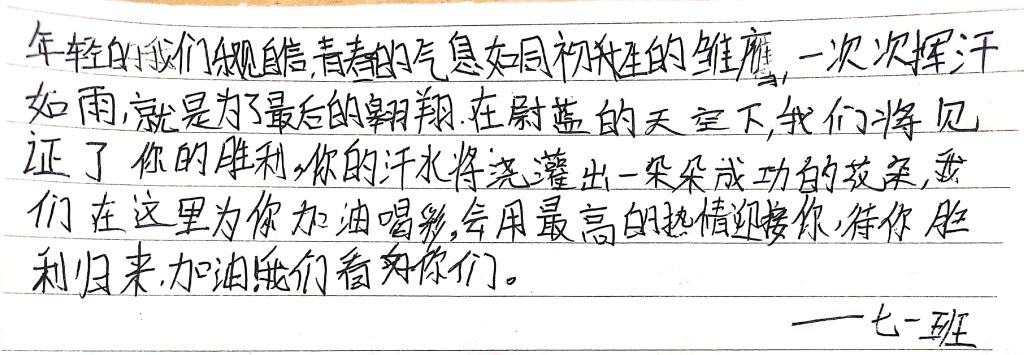 年轻的我们乐观自信,青春的气息如同初生的雏鹰,一次次挥汗
如雨,就是为了最后的翱翔.在蔚蓝的天空下,我们将见
证了你的胜利,你的汗水将浇灌出一朵朵成功的花朵,我
们在这里为你加油喝彩,会用最高的热情迎接你,待你胜
利归来.加油!我们看好你们。
——七一班